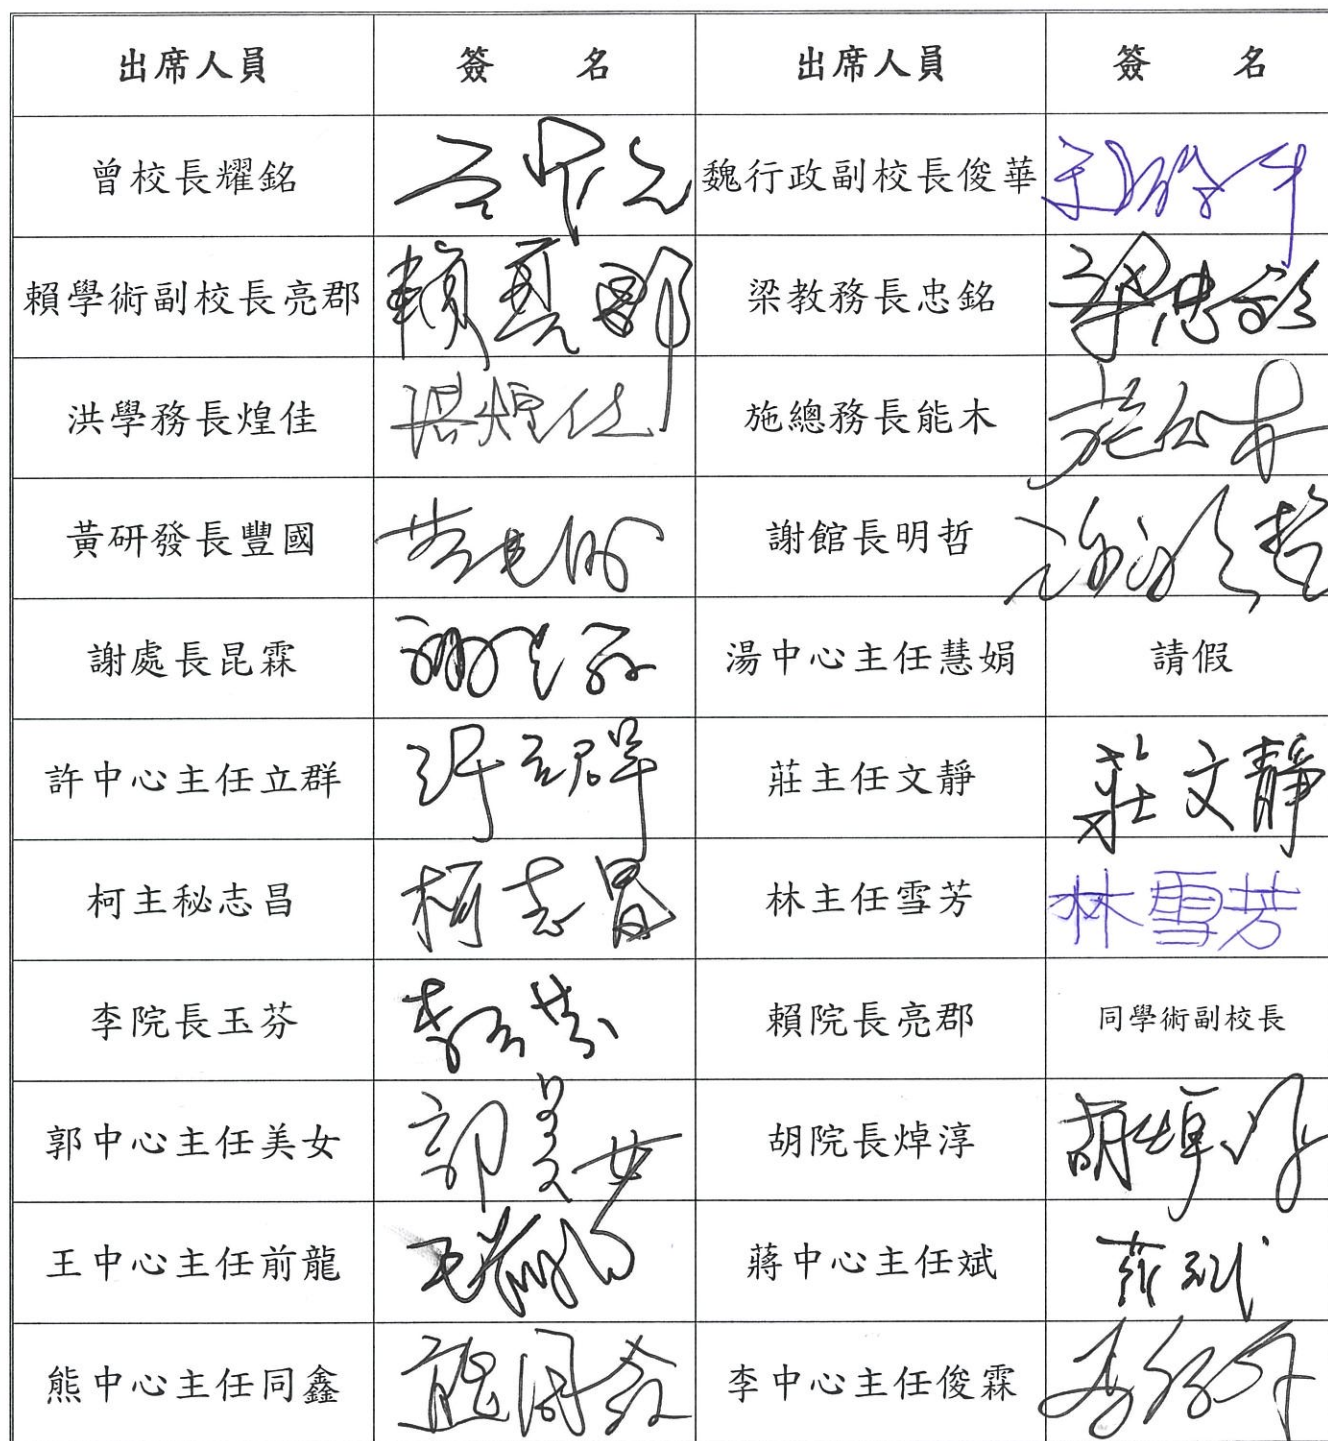 出席人員 簽 名 出席人員 簽 名
曾校長耀銘 魏行政副校長俊華
賴學術副校長亮郡 賴亮郡 梁教務長忠銘 梁忠銘
洪學務長煌佳 洪煌佳 施總務長能木 施能木
黃研發長豐國 謝館長明哲 謝明哲
謝處長昆霖 湯中心主任慧娟 請假
許中心主任立群 許立群 莊主任文靜 莊文靜
柯主秘志昌 柯志昌 林主任雪芳 林雪芳
李院長玉芬 李玉芬 賴院長亮郡 同學術副校長
郭中心主任美女 郭美女 胡院長焯淳 胡焯淳
王中心主任前龍 蔣中心主任斌 蔣斌
熊中心主任同鑫 熊同鑫 李中心主任俊霖